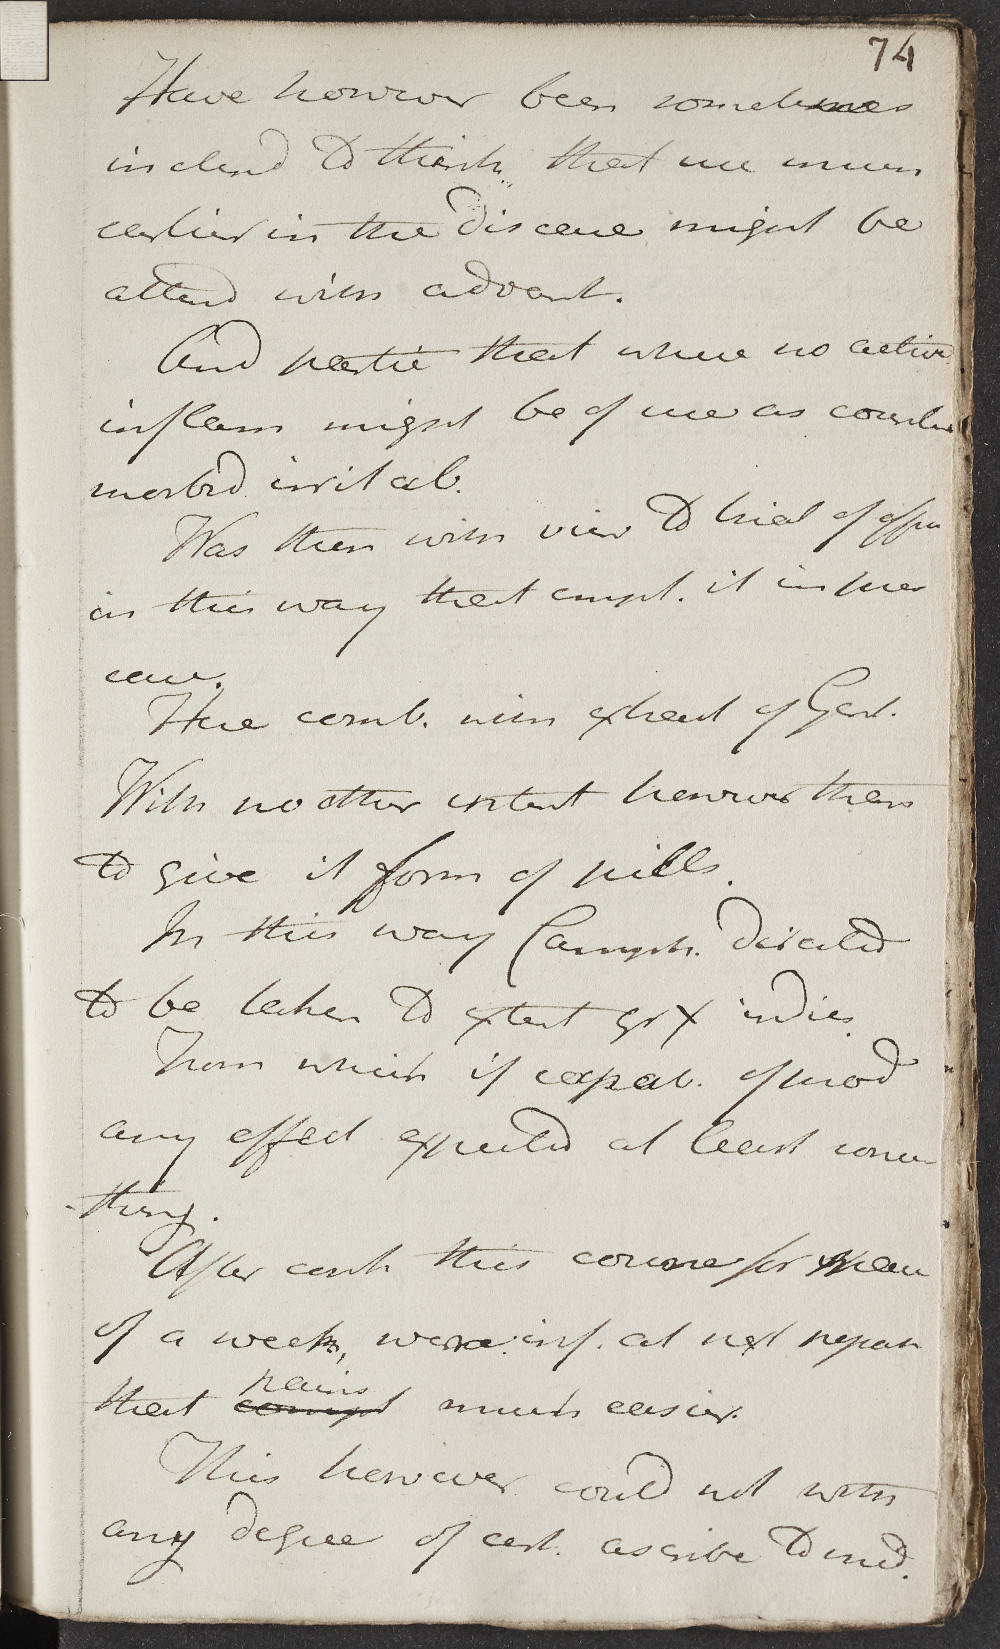 74
Have however been sometimes
inclend to think that use even
earlier in the disease might be
attend with advant.
And partic that where no active
inflam might be of use as counter
morbid irritab.
Was then with view to trial of
in this way that empl. it in pres
case.
Here comb. with extract of Gent.
With no other intent however then
to give it form of pills.
In this way Camph. directed
to be taken to extent gr x indies.
From which if capab. of prod
any effect expected at least some
-thing.
After cont this course for space
of a week, were inf. at next report
pains
that compt much easier.
This however could not with
any degree of cert. ascribe to med.